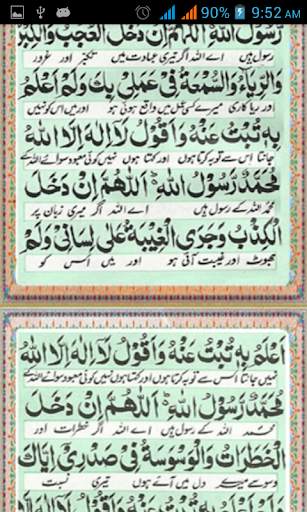 90% 9:52 AM
رَسُوْلُ اللّٰهِ اَللّٰهُمَّ اِنْ دَخَلَ الْعُجْبُ وَالْكِبْرُ
رسول ہیں اے اللہ اگر تیری عبادت میں تکبّر اور غرور
وَالرِّيَآءُ وَالسُّمْعَةُ فِيْ عَمَلِيْ بِكَ وَلَمْ اَعْلَمْ
اور ریا کاری میرے کسی عمل میں واقع ہوئی ہو اور میں اس کو نہیں
بِهٖ تُبْتُ عَنْهُ وَاَقُوْلُ لَآ اِلٰهَ اِلَّا اللّٰهُ
جانتا اس سے توبہ کرتا ہوں اور کہتا ہوں نہیں کوئی معبود سوائے اللہ کے
مُحَمَّدٌ رَّسُوْلُ اللّٰهِ اَللّٰهُمَّ اِنْ دَخَلَ
محمد اللہ کے رسول ہیں اے اللہ اگر میری زبان پر
الْكِذْبُ وَجَرَى الْغِيْبَةُ عَلٰى لِسَانِيْ وَلَمْ
جھوٹ اور غیبت آتی ہو اور میں اس کو
اَعْلَمْ بِهٖ تُبْتُ عَنْهُ وَاَقُوْلُ لَآ اِلٰهَ اِلَّا اللّٰهُ
نہیں جانتا اس سے توبہ کرتا ہوں اور کہتا ہوں نہیں کوئی معبود سوائے اللہ کے
مُحَمَّدٌ رَّسُوْلُ اللّٰهِ اَللّٰهُمَّ اِنْ دَخَلَ
محمد اللہ کے رسول ہیں اے اللہ اگر خطرات اور
الْخَطَرَاتُ وَالْوَسْوَسَةُ فِيْ صَدْرِيْ اِيَّاكَ
وسوسے میرے دل میں آئے ہوں تیری نسبت